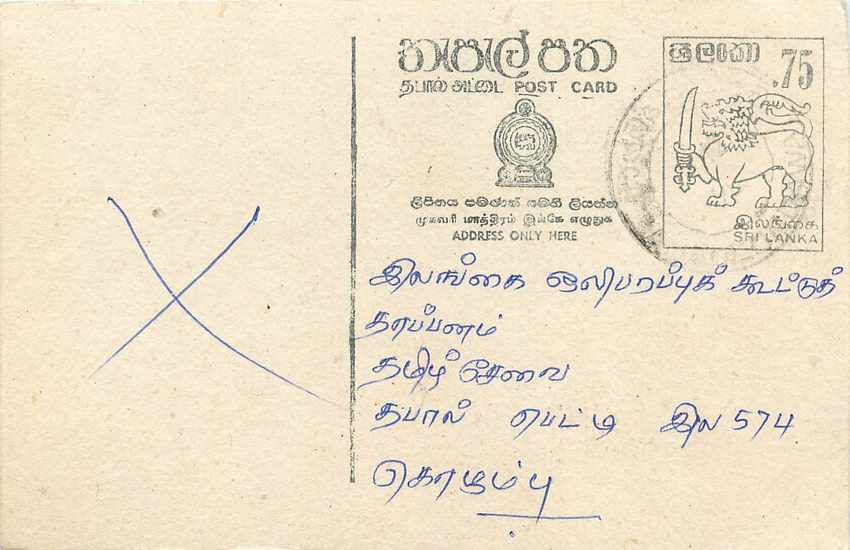 තැපැල් පත
தபால் அட்டை POST CARD
ලිපිනය පමණක් මෙහි ලියන්න
முகவரி மாத்திரம் இங்கே எழுதுக
ADDRESS ONLY HERE
ශ්‍රී ලංකා
.75
இலங்கை
SRI LANKA
இலங்கை ஒலிபரப்புக் கூட்டுத்
தாபனம்
தமிழ் சேவை
தபால் பெட்டி இல 574
கொழும்பு